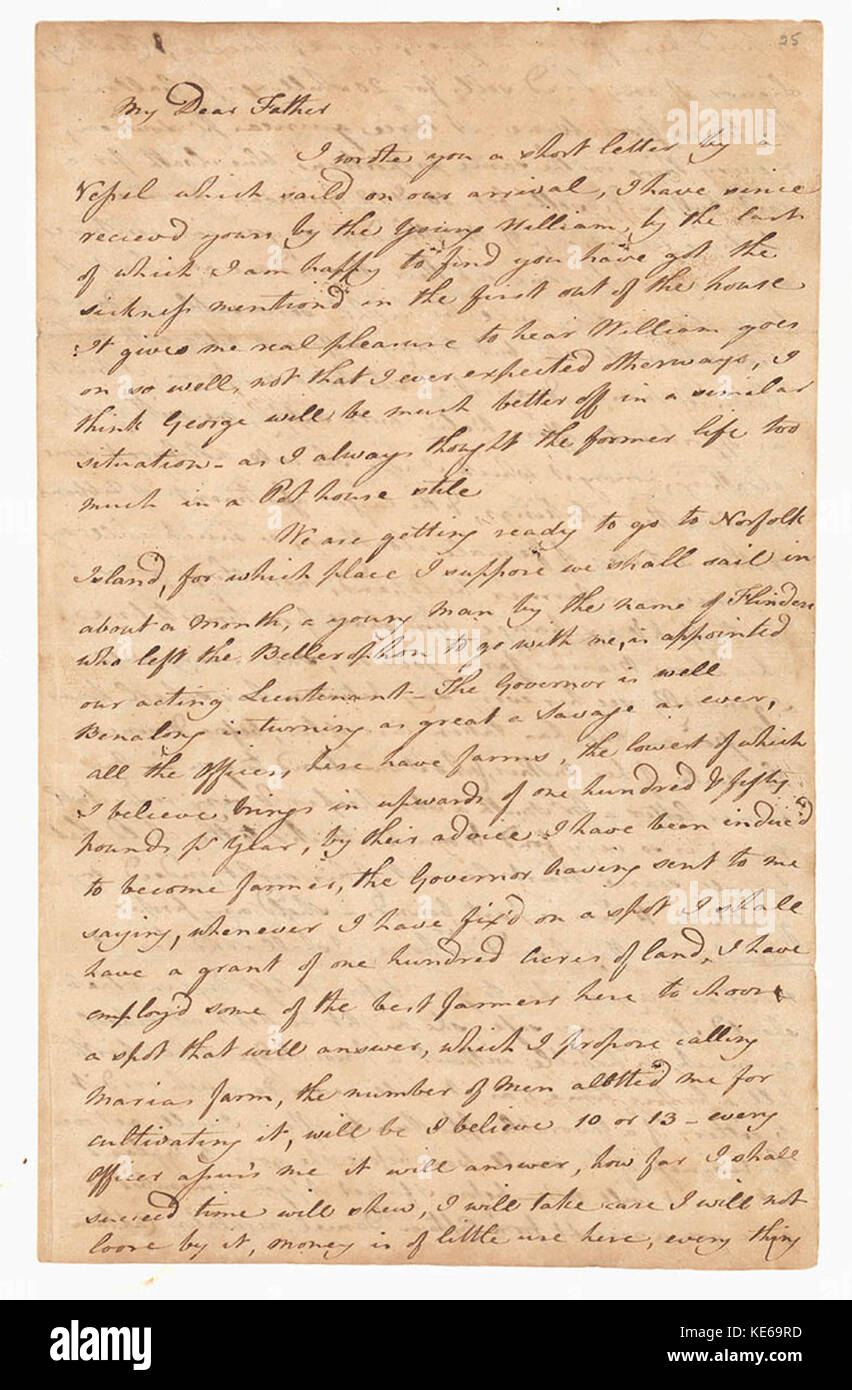 25
My Dear Father
I wrote you a short letter by a
Vessel which saild on our arrival, I have since
recievd yours by the Young William, by the last
of which I am happy to find you have got the
sickness mentiond in the first out of the house
It gives me real pleasure to hear William goes
on so well, not that I ever expected otherways, I
think George will be much better off in a similar
situation - as I always thought the former life too
much in a Pot house stile
We are getting ready to go to Norfolk
Island, for which place I suppose we shall sail in
about a Month, a young man by the name of Flinders
who left the Bellerophon to go with me, is appointed
our acting Lieutenant - The Governor is well
Benalong is turning as great a Savage as ever,
all the Officers here have farms, the lowest of which
I believe brings in upwards of one hundred & fifty
pounds pr Year, by their advice I have been induc'd
to become farmer, the Governor having sent to me
saying, whenever I have fix'd on a spot I shall
have a grant of one hundred Acres of land, I have
employd some of the best farmers here to choose
a spot that will answer, which I propose calling
Marias farm, the number of Men allotted me for
cultivating it, will be I believe 10 or 13 - every
Officer assur's me it will answer, how far I shall
succeed time will shew, I will take care I will not
loose by it, money is of little use here, every thing
alamy
KE69RD
www.alamy.com